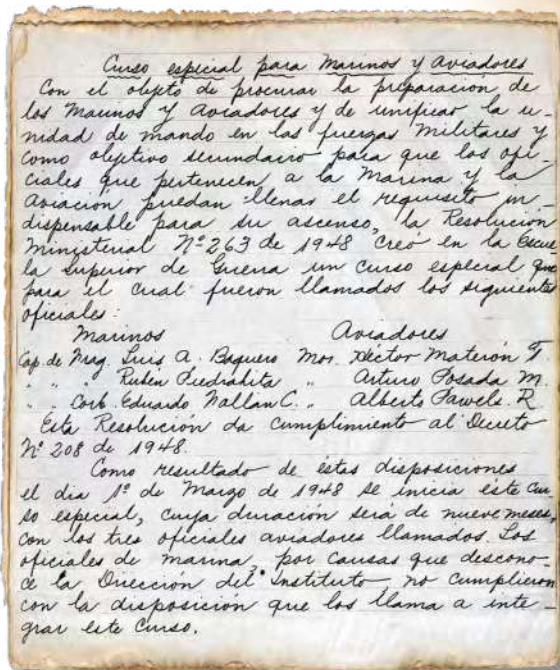 Curso especial para Marinos y Aviadores
Con el objeto de procurar la preparación de
los Marinos y Aviadores y de unificar la u-
nidad de mando en las fuerzas Militares y
como objetivo secundario para que los ofi-
ciales que pertenecen a la Marina y la
Aviacion puedan llenar el requisito in-
dispensable para su ascenso, la Resolucion
Ministerial Nº 263 de 1948 creó en la Escue
la Superior de Guerra un curso especial que
para el cual fueron llamados los siguientes
oficiales:
Marinos Aviadores
Cap de Luis A. Baquero Mor. Hector Materón T
" " " Ruben Piedrahita " Arturo Posada M.
" " Corb. Eduardo C. " Alberto Pawels. R
Esta Resolución da cumplimiento al Decreto
Nº 208 de 1948.
Como resultado de estas disposiciones
el dia 1º de Marzo de 1948 se inicia éste cur
so especial, cuya duración será de nueve meses,
con los tres oficiales aviadores llamados. Los
oficiales de marina, por causas que descono-
ce la Dirección del Instituto, no cumplieron
con la disposición que los llama a inte-
grar este curso.